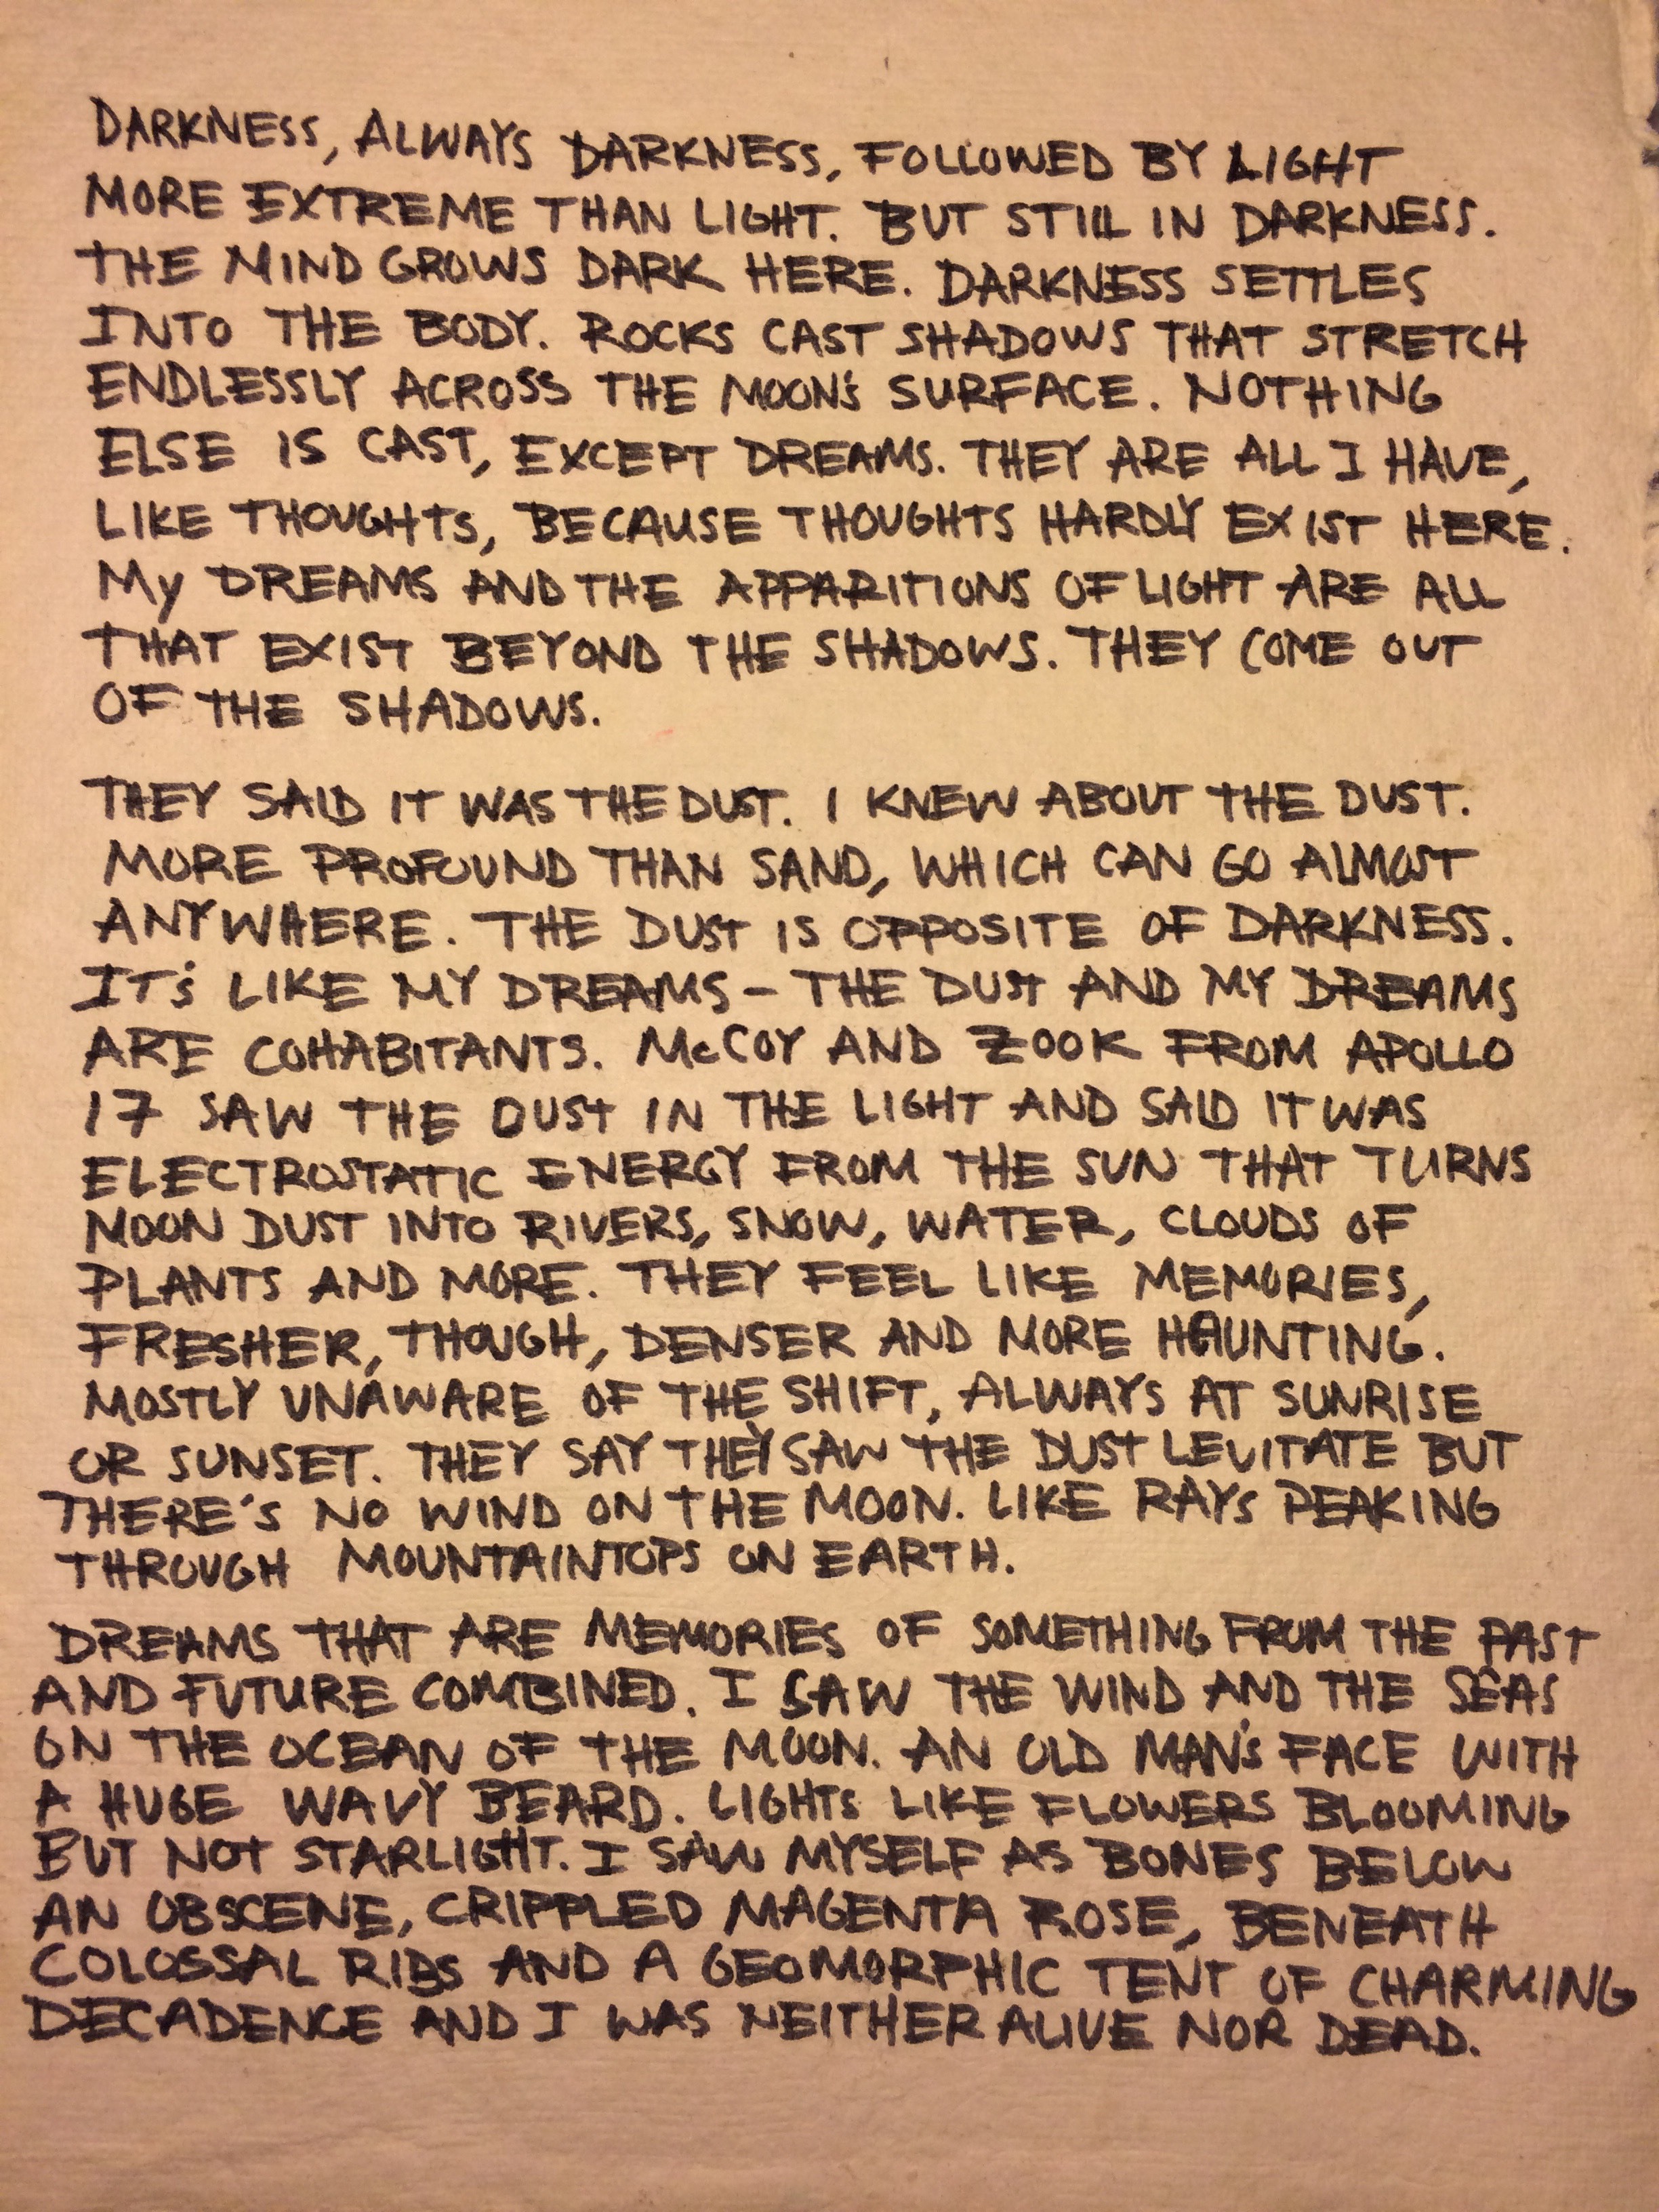 DARKNESS, ALWAYS DARKNESS, FOLLOWED BY LIGHT
MORE EXTREME THAN LIGHT. BUT STILL IN DARKNESS.
THE MIND GROWS DARK HERE. DARKNESS SETTLES
INTO THE BODY. ROCKS CAST SHADOWS THAT STRETCH
ENDLESSLY ACROSS THE MOON'S SURFACE. NOTHING
ELSE IS CAST, EXCEPT DREAMS. THEY ARE ALL I HAVE,
LIKE THOUGHTS, BECAUSE THOUGHTS HARDLY EXIST HERE.
My DREAMS AND THE APPARITIONS OF LIGHT ARE ALL
THAT EXIST BEYOND THE SHADOWS. THEY COME OUT
OF THE SHADOWS.
THEY SAID IT WAS THE DUST. I KNEW ABOUT THE DUST.
MORE PROFOUND THAN SAND, WHICH CAN GO ALMOST
ANYWHERE. THE DUST IS OPPOSITE OF DARKNESS.
IT'S LIKE MY DREAMS - THE DUST AND MY DREAMS
ARE COHABITANTS. McCOY AND ZOOK FROM APOLLO
17 SAW THE DUST IN THE LIGHT AND SAID IT WAS
ELECTROSTATIC ENERGY FROM THE SUN THAT TURNS
MOON DUST INTO RIVERS, SNOW, WATER, CLOUDS OF
PLANTS AND MORE. THEY FEEL LIKE MEMORIES,
FRESHER, THOUGH, DENSER AND MORE HAUNTING.
MOSTLY UNAWARE OF THE SHIFT, ALWAYS AT SUNRISE
OR SUNSET. THEY SAY THEY SAW THE DUST LEVITATE BUT
THERE'S NO WIND ON THE MOON. LIKE RAYS PEAKING
THROUGH MOUNTAINTOPS ON EARTH.
DREAMS THAT ARE MEMORIES OF SOMETHING FROM THE PAST
AND FUTURE COMBINED. I SAW THE WIND AND THE SEAS
ON THE OCEAN OF THE MOON. AN OLD MAN'S FACE WITH
A HUGE WAVY BEARD. LIGHTS LIKE FLOWERS BLOOMING
BUT NOT STARLIGHT. I SAW MYSELF AS BONES BELOW
AN OBSCENE, CRIPPLED MAGENTA ROSE, BENEATH
COLOSSAL RIBS AND A GEOMORPHIC TENT OF CHARMING
DECADENCE AND I WAS NEITHER ALIVE NOR DEAD.